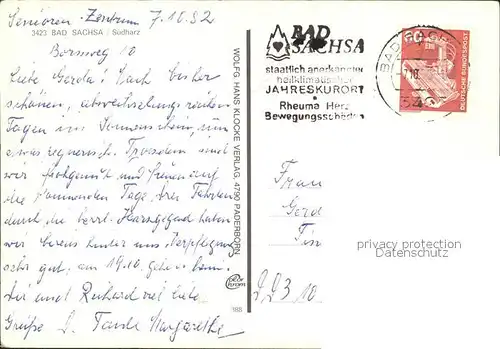 Senioren-Zentrum 7.10.82
3423 BAD SACHSA / Südharz
Bornweg 10
Liebe Gerda! Nach bisher
schönen, abwechselungsreichen
Tagen im Sonnenschein, nun
etwas regnerisch. Trotzdem sind
wir frohgemut und freuen auf
die kommenden Tage. drei Fahrten
durch die herrl. Harzgegend haben
wir bereits hinter uns. Verpflegung
sehr gut. am 19.10. geht's heim.
Dir und Richard viel liebe
Grüße D. Tante Margarethe
WOLFG. HANS KLOCKE VERLAG, 4790 PADERBORN
988
BAD
SACHSA
staatlich anerkannter
heilklimatischer
JAHRESKURORT
Rheuma Herz
Bewegungsschäden
BAD
60
DEUTSCHE BUNDESPOST
Frau
Gerd
Tin
privacy protection
Datenschutz
223 10